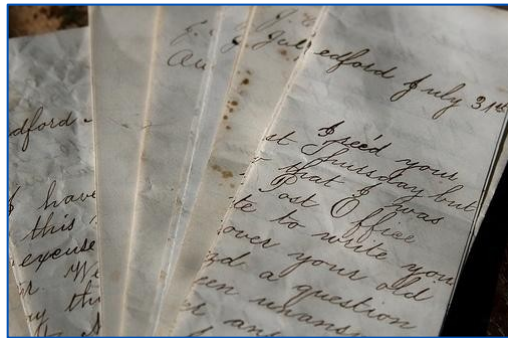 edford July 31st
I rec'd your
st Thursday but
that I was
Post Office
te to write you
over your old
nd a question
een unans
and
Au
dford
I have
this
excuse
r. We
ay thi